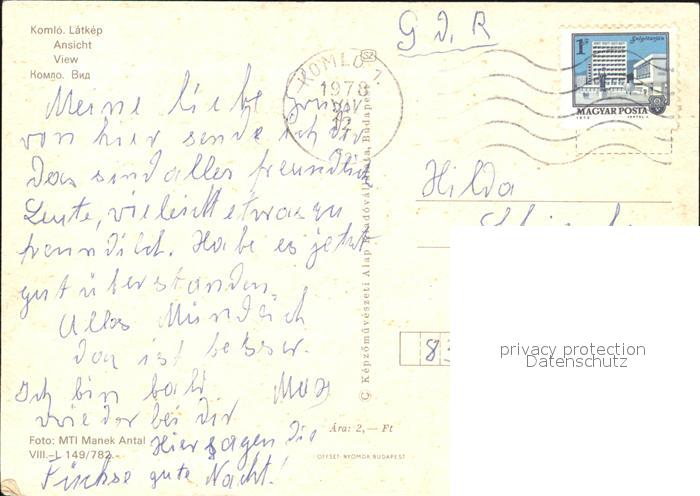 Komló. Látkép
Ansicht
View
Комло. Вид
G D. R
KOMLÓ 1.
1978
12
1Ft
Salgótarján
MAGYAR POSTA
1973
Meine liebe
von hier sende ich dir
Das sind alles freundlich
Leute, vieleicht etwas zu
freundlich. Habe es jetzt
gut überstanden
Alles Mündlich
dan ist besser.
Ich bin bald Max
wieder bei dir
Hier sagen die
Füchse gute Nacht!
Hilda
83
Képzőművészeti Alap Kiadóvállalata, Budapest
Ára: 2,— Ft
Foto: MTI Manek Antal
VIII.—L 149/782
OFFSET-NYOMDA BUDAPEST
privacy protection
Datenschutz